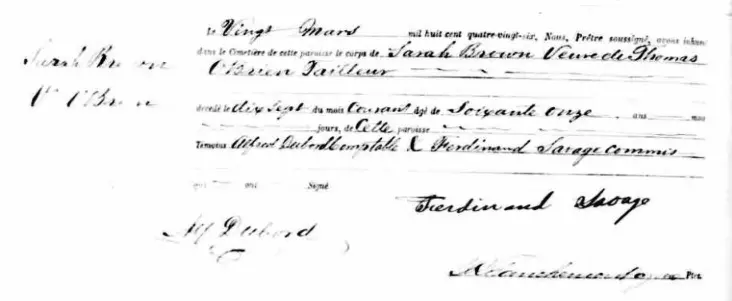 Le Vingt Mars mil huit cent quatre-vingt-six, Nous, Prêtre soussigné, avons inhum
dans le Cimetière de cette paroisse le corps de Sarah Brown Veuve de Thomas
Sarah Brown
O'Brien Tailleur
O'Brien
décedé le dix sept du mois Courant âgé de Soixante onze ans mois
jours, de Cette paroisse
Temoins Alfred Dubord Comptable & Ferdinand Savage commis
qui ont Signé
Ferdinand Savage
Alf Dubord
Ptre